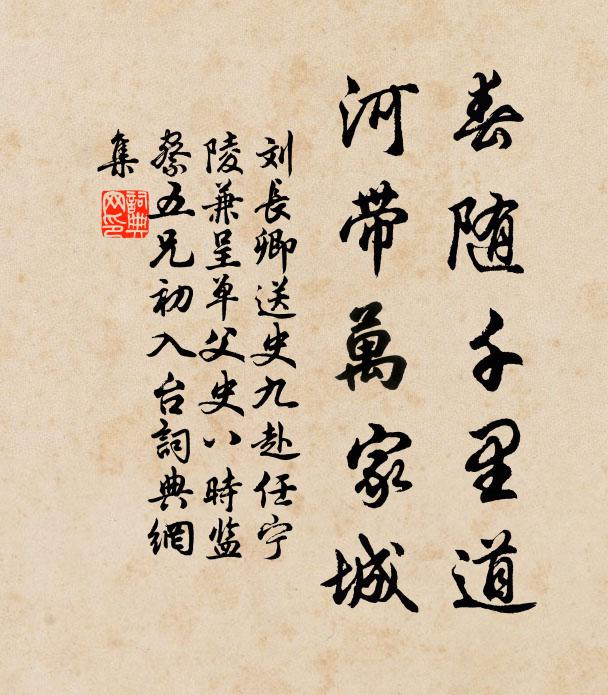 春随千里道
河帶萬家城
刘長卿送史九赴任宁
陵兼呈单父史八時监
察五兄初入台詞典網
集
詞典
网印